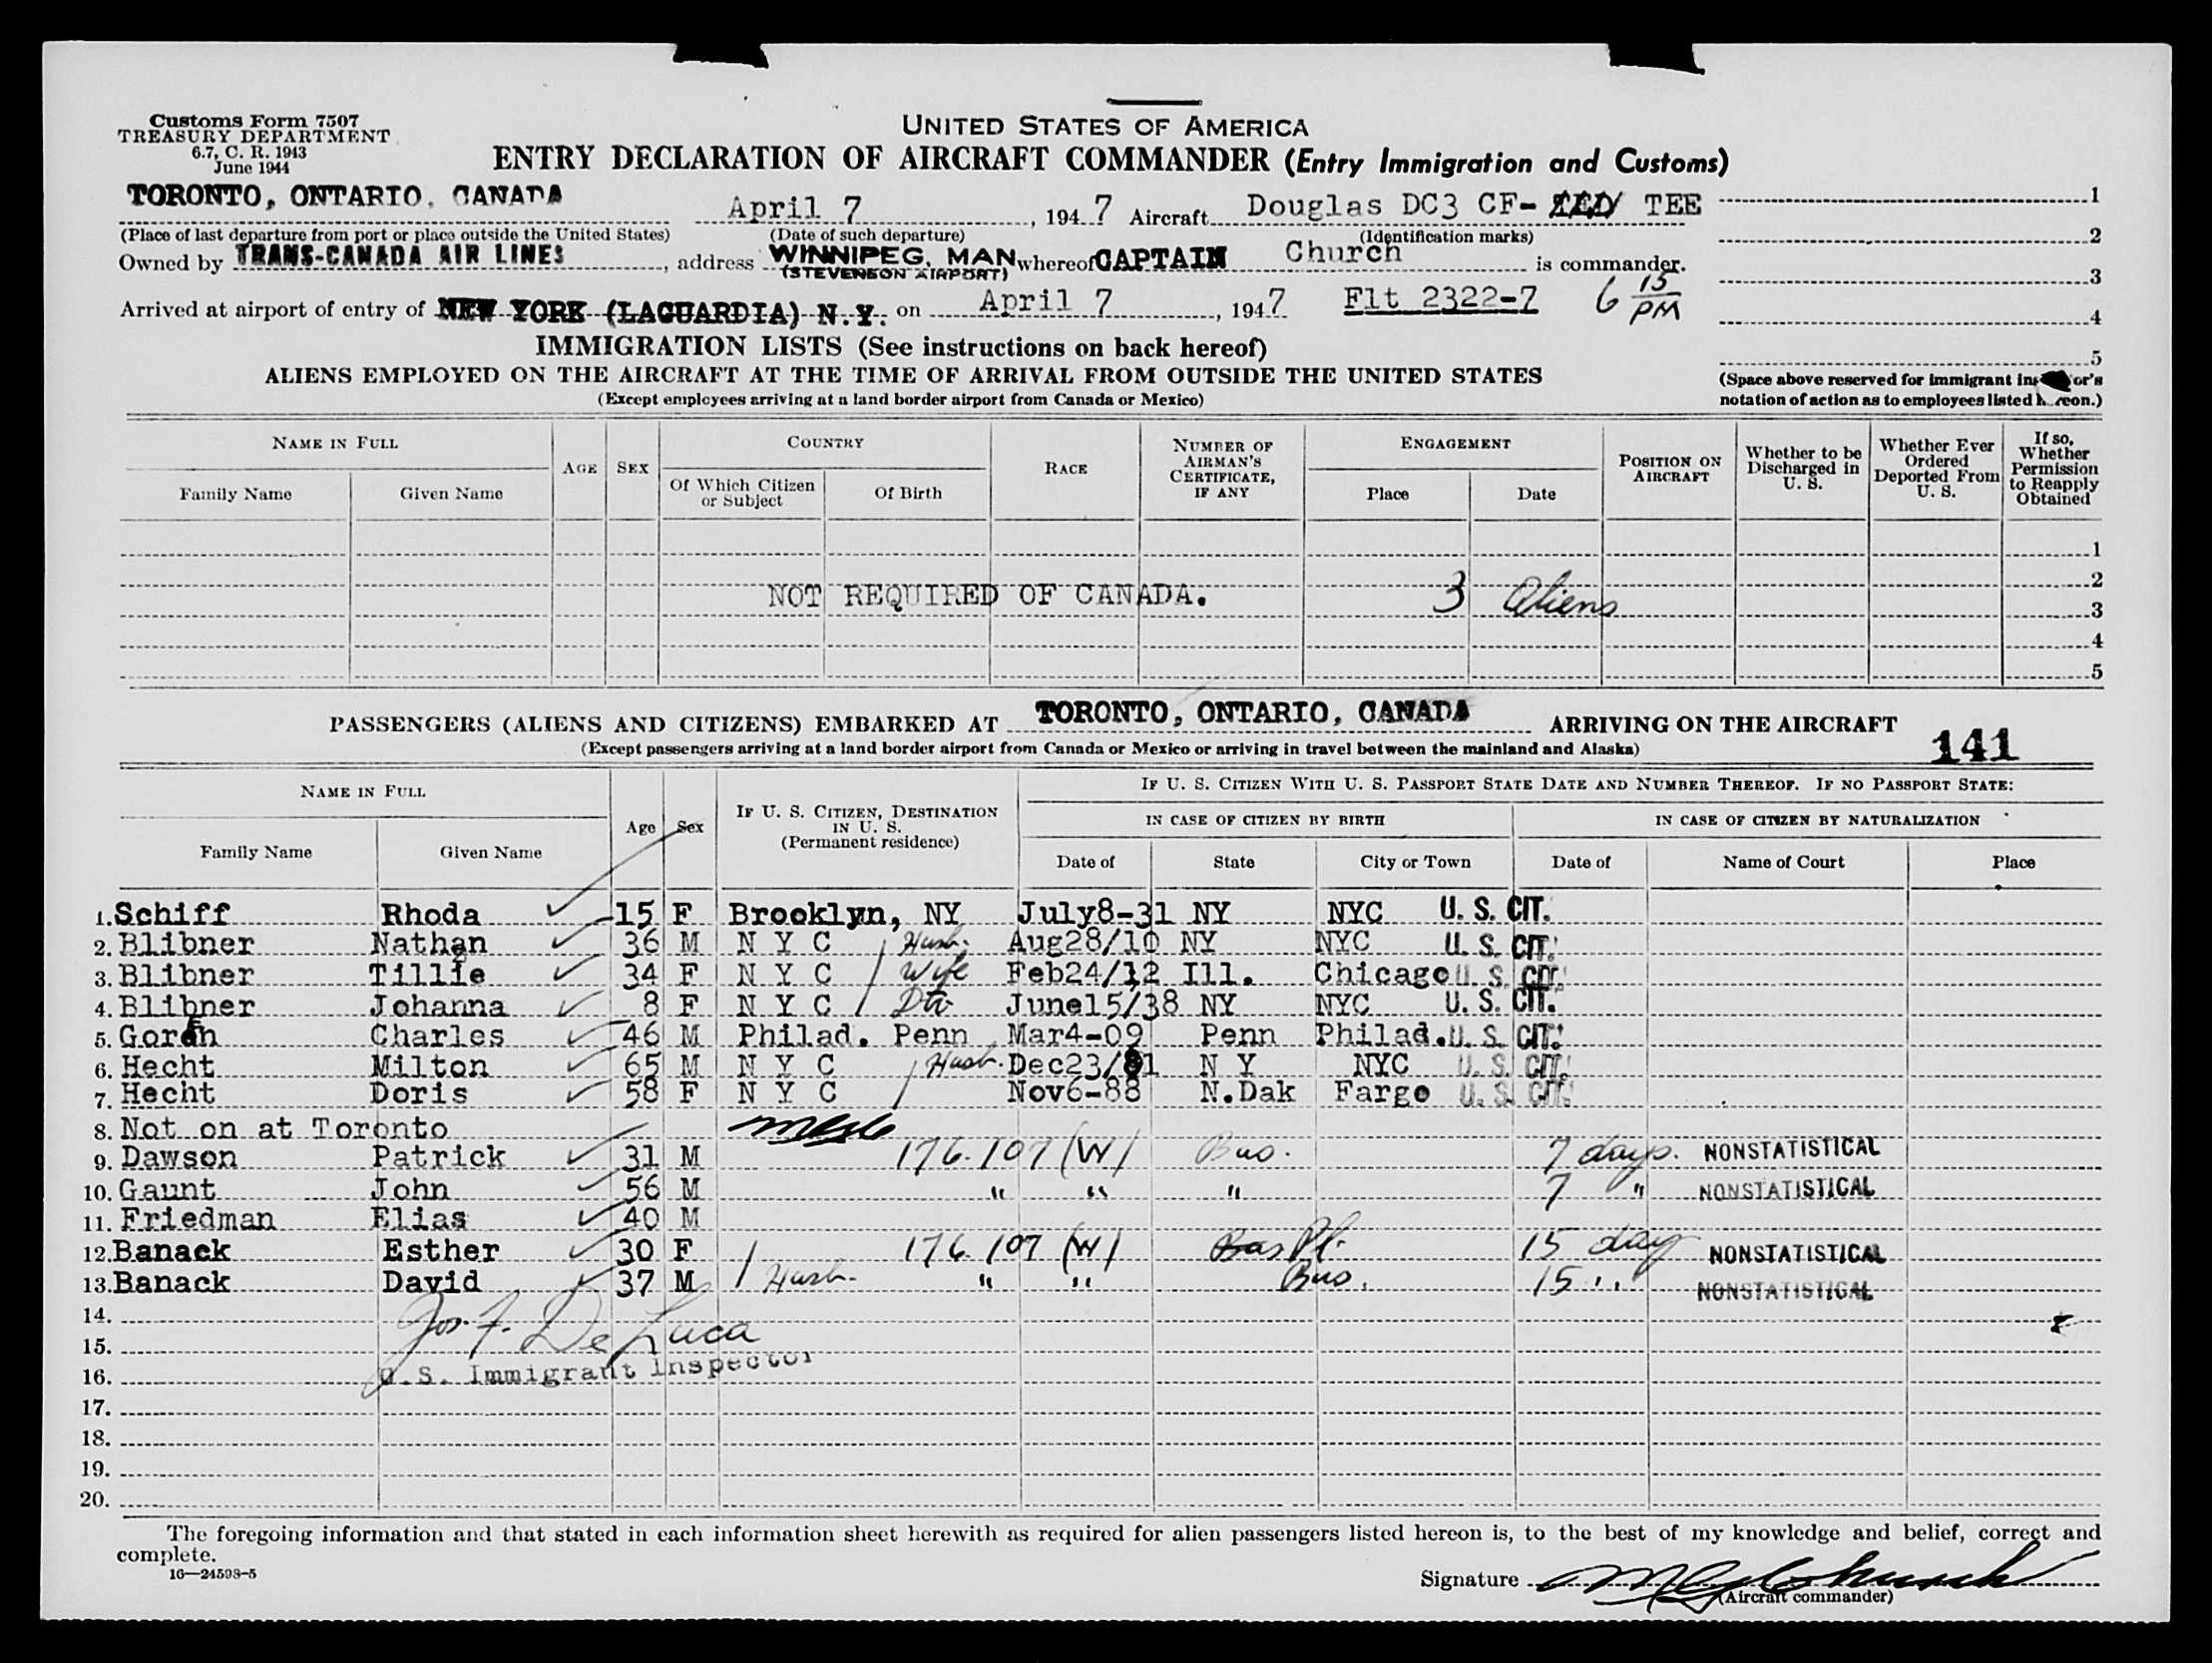 Customs Form 7507
TREASURY DEPARTMENT
6.7, C. R. 1943
June 1944
UNITED STATES OF AMERICA
ENTRY DECLARATION OF AIRCRAFT COMMANDER (Entry Immigration and Customs)
TORONTO, ONTARIO, CANADA April 7, 1947 Aircraft Douglas DC3 CF- TEE 1
(Place of last departure from port or place outside the United States) (Date of such departure) (Identification marks) 2
Owned by TRANS-CANADA AIR LINES, address WINNIPEG, MAN (STEVENSON AIRPORT) whereof CAPTAIN Church is commander. 3
Arrived at airport of entry of NEW YORK (LAGUARDIA) N.Y. on April 7, 1947 Flt 2322-7 6 15 PM 4
IMMIGRATION LISTS (See instructions on back hereof) 5
ALIENS EMPLOYED ON THE AIRCRAFT AT THE TIME OF ARRIVAL FROM OUTSIDE THE UNITED STATES
(Except employees arriving at a land border airport from Canada or Mexico)
(Space above reserved for immigrant or's
notation of action as to employees listed)
NAME IN FULL
Family Name Given Name
AGE SEX
COUNTRY
Of Which Citizen or Subject Of Birth
RACE
NUMBER OF AIRMAN'S CERTIFICATE, IF ANY
ENGAGEMENT
Place Date
POSITION ON AIRCRAFT
Whether to be Discharged in U. S.
Whether Ever Ordered Deported From U. S.
If so, Whether Permission to Reapply Obtained
1
2
NOT REQUIRED OF CANADA. 3 Aliens 3
4
5
PASSENGERS (ALIENS AND CITIZENS) EMBARKED AT TORONTO, ONTARIO, CANADA ARRIVING ON THE AIRCRAFT
(Except passengers arriving at a land border airport from Canada or Mexico or arriving in travel between the mainland and Alaska) 141
NAME IN FULL
Family Name Given Name
Age Sex
IF U. S. CITIZEN, DESTINATION IN U. S. (Permanent residence)
IF U. S. CITIZEN WITH U. S. PASSPORT STATE DATE AND NUMBER THEREOF. IF NO PASSPORT STATE:
IN CASE OF CITIZEN BY BIRTH IN CASE OF CITIZEN BY NATURALIZATION
Date of State City or Town Date of Name of Court Place
1. Schiff Rhoda 15 F Brooklyn, NY July8-31 NY NYC U. S. CIT.
2. Blibner Nathan 36 M N Y C Husb. Aug28/10 NY NYC U. S. CIT.
3. Blibner Tillie 34 F N Y C Wife Feb24/12 Ill. Chicago U. S. CIT.
4. Blibner Johanna 8 F N Y C Dtr June15/38 NY NYC U. S. CIT.
5. Goren Charles 46 M Philad. Penn Mar4-09 Penn Philad. U. S. CIT.
6. Hecht Milton 65 M N Y C Husb. Dec23/81 N Y NYC U. S. CIT.
7. Hecht Doris 58 F N Y C Nov6-88 N.Dak Fargo U. S. CIT.
8. Not on at Toronto
9. Dawson Patrick 31 M 176.107 (W) Bus. 7 days. NONSTATISTICAL
10. Gaunt John 56 M " " " 7 " NONSTATISTICAL
11. Friedman Elias 40 M
12. Banack Esther 30 F 176.107 (W) Pl. 15 day NONSTATISTICAL
13. Banack David 37 M Husb. " " Bus. 15 " NONSTATISTICAL
14.
Jos. F. De Luca
15.
16. U.S. Immigrant Inspector
17.
18.
19.
20.
The foregoing information and that stated in each information sheet herewith as required for alien passengers listed hereon is, to the best of my knowledge and belief, correct and
complete.
16—24598-5
Signature
(Aircraft commander)